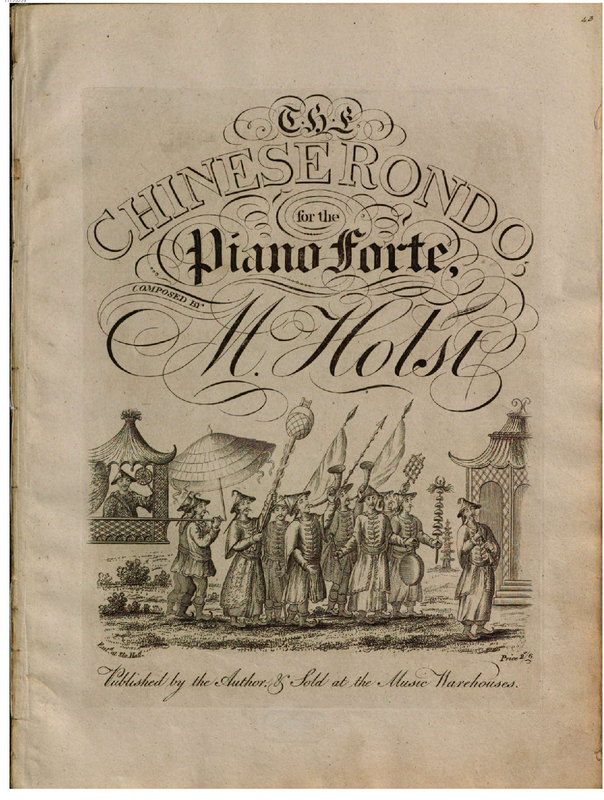 43
THE
CHINESE RONDO,
for the
Piano Forte,
COMPOSED BY
M. Holst
Price 2/6
Published by the Author, & Sold at the Music Warehouses.